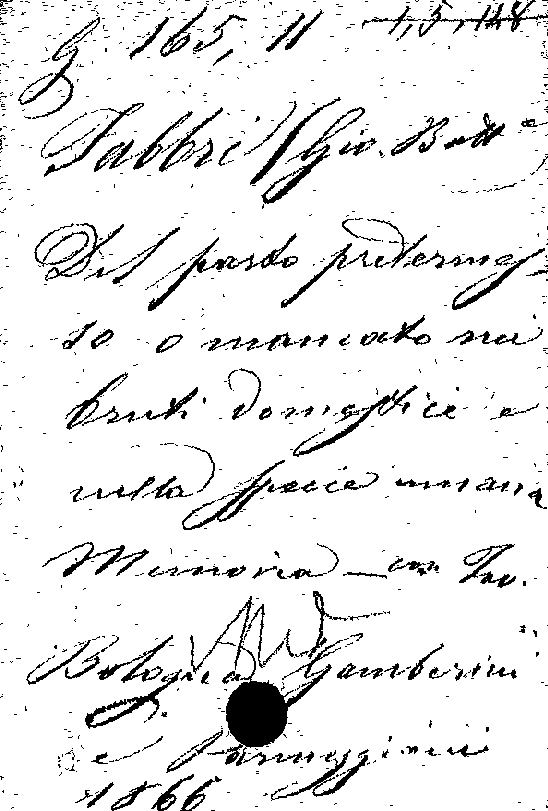 G. 165, 11 1,5,128
Fabbri (Gio. Batt.a
Del parto pretermes-
so o mancato nei
bruti domestici e
nella specie umana
Memoria - con Tav.
Bologna Gamberini
e Parmeggiani
1866